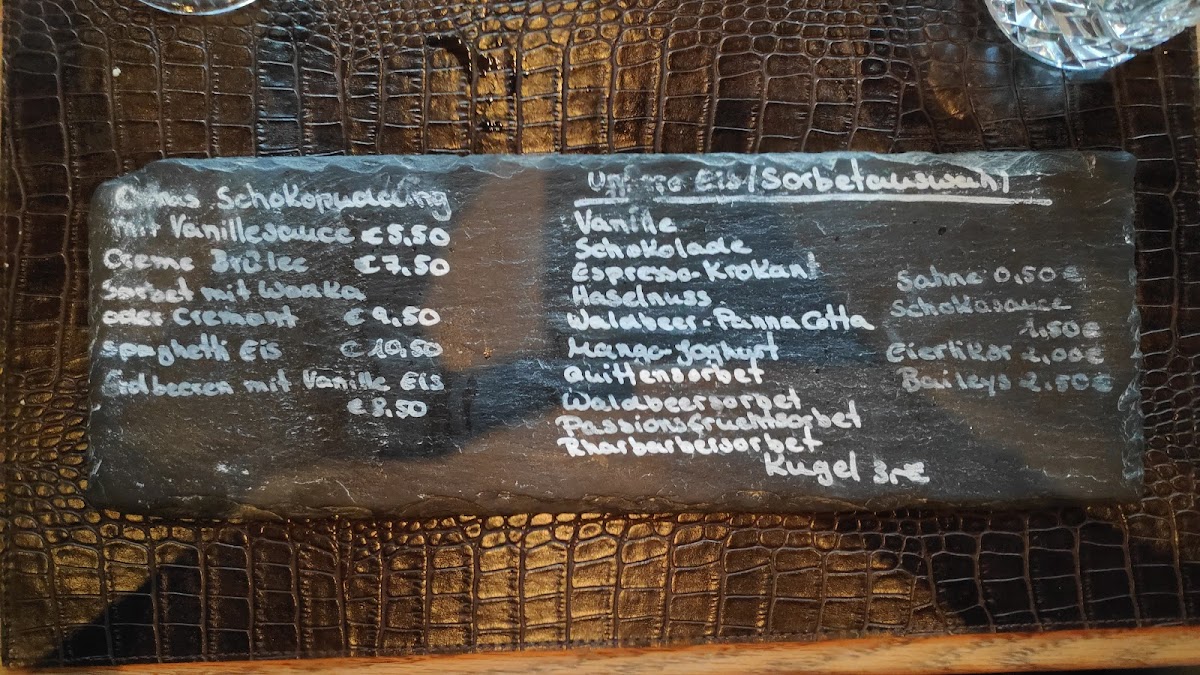 Omas Schokopudding
mit Vanillesauce €5,50
Creme Brûlee €7,50
Sorbet mit Wodka
oder Cremant €9,50
Spaghetti Eis €10,50
Erdbeeren mit Vanille Eis
€8,50
Unsere Eis/Sorbetauswahl
Vanille
Schokolade
Espresso-Krokant
Haselnuss
Waldbeer-Panna Cotta
Mango-Joghurt
Quittensorbet
Waldbeersorbet
Passionsfruchtsorbet
Rharbarbersorbet
Kugel 3,-€
Sahne 0,50€
Schokosauce
1,50€
Eierlikör 2,00€
Baileys 2,50€